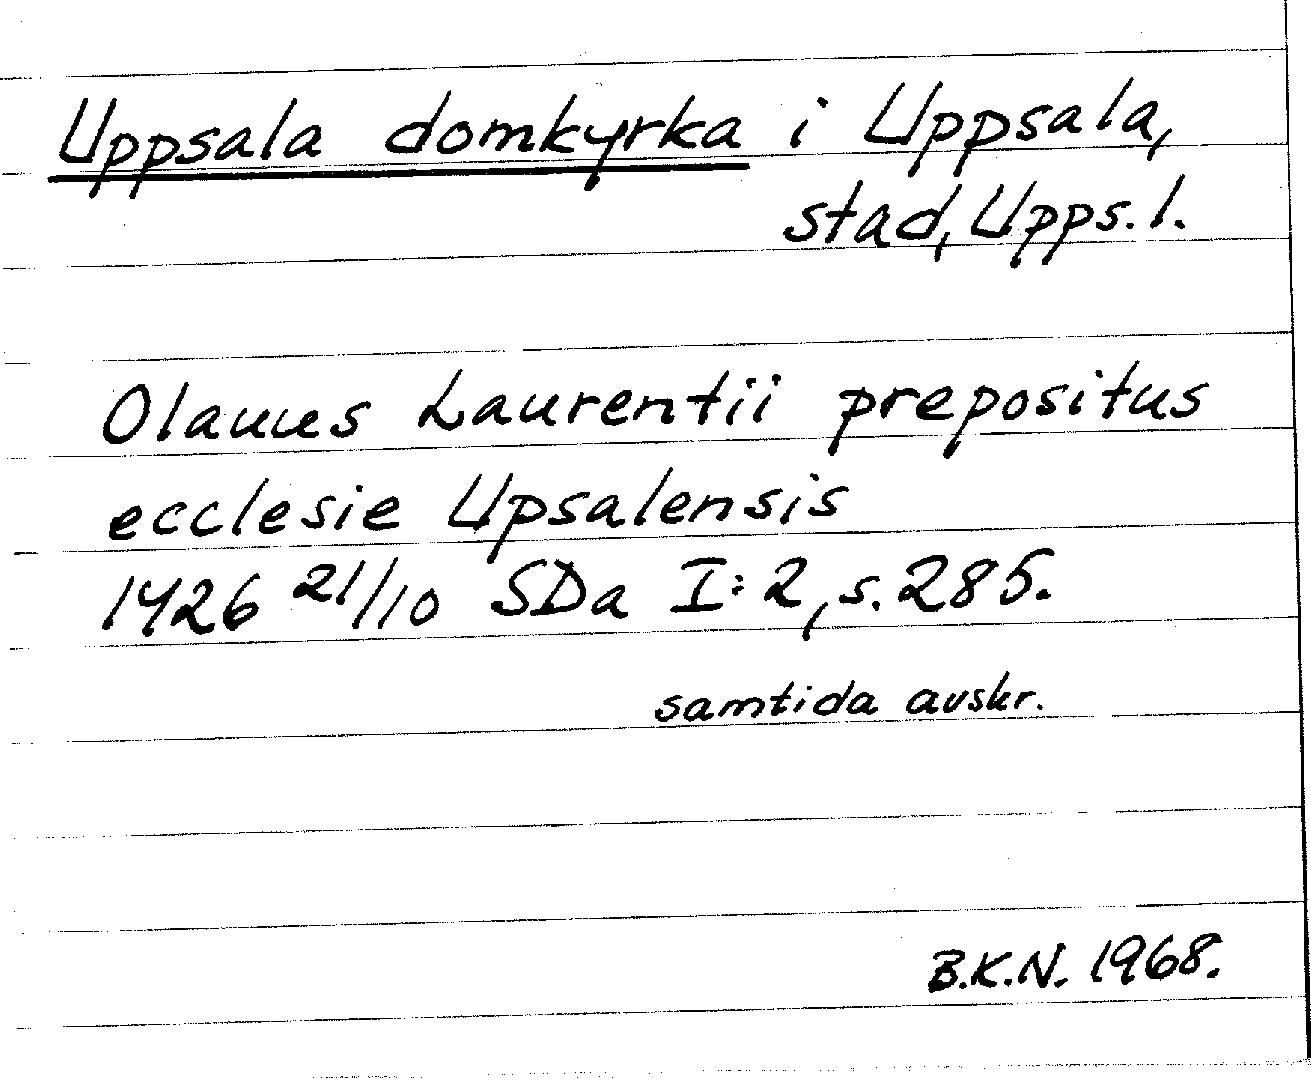 Uppsala domkyrka i Uppsala,
stad, Upps. l.
Olauus Laurentii prepositus
ecclesie Upsalensis
1426 21/10 SDa I:2, s. 285.
samtida avskr.
B.K.N. 1968.